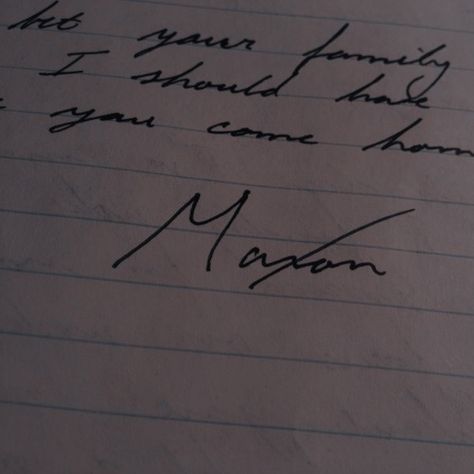 but your family
I should have
you come hom
Maxon